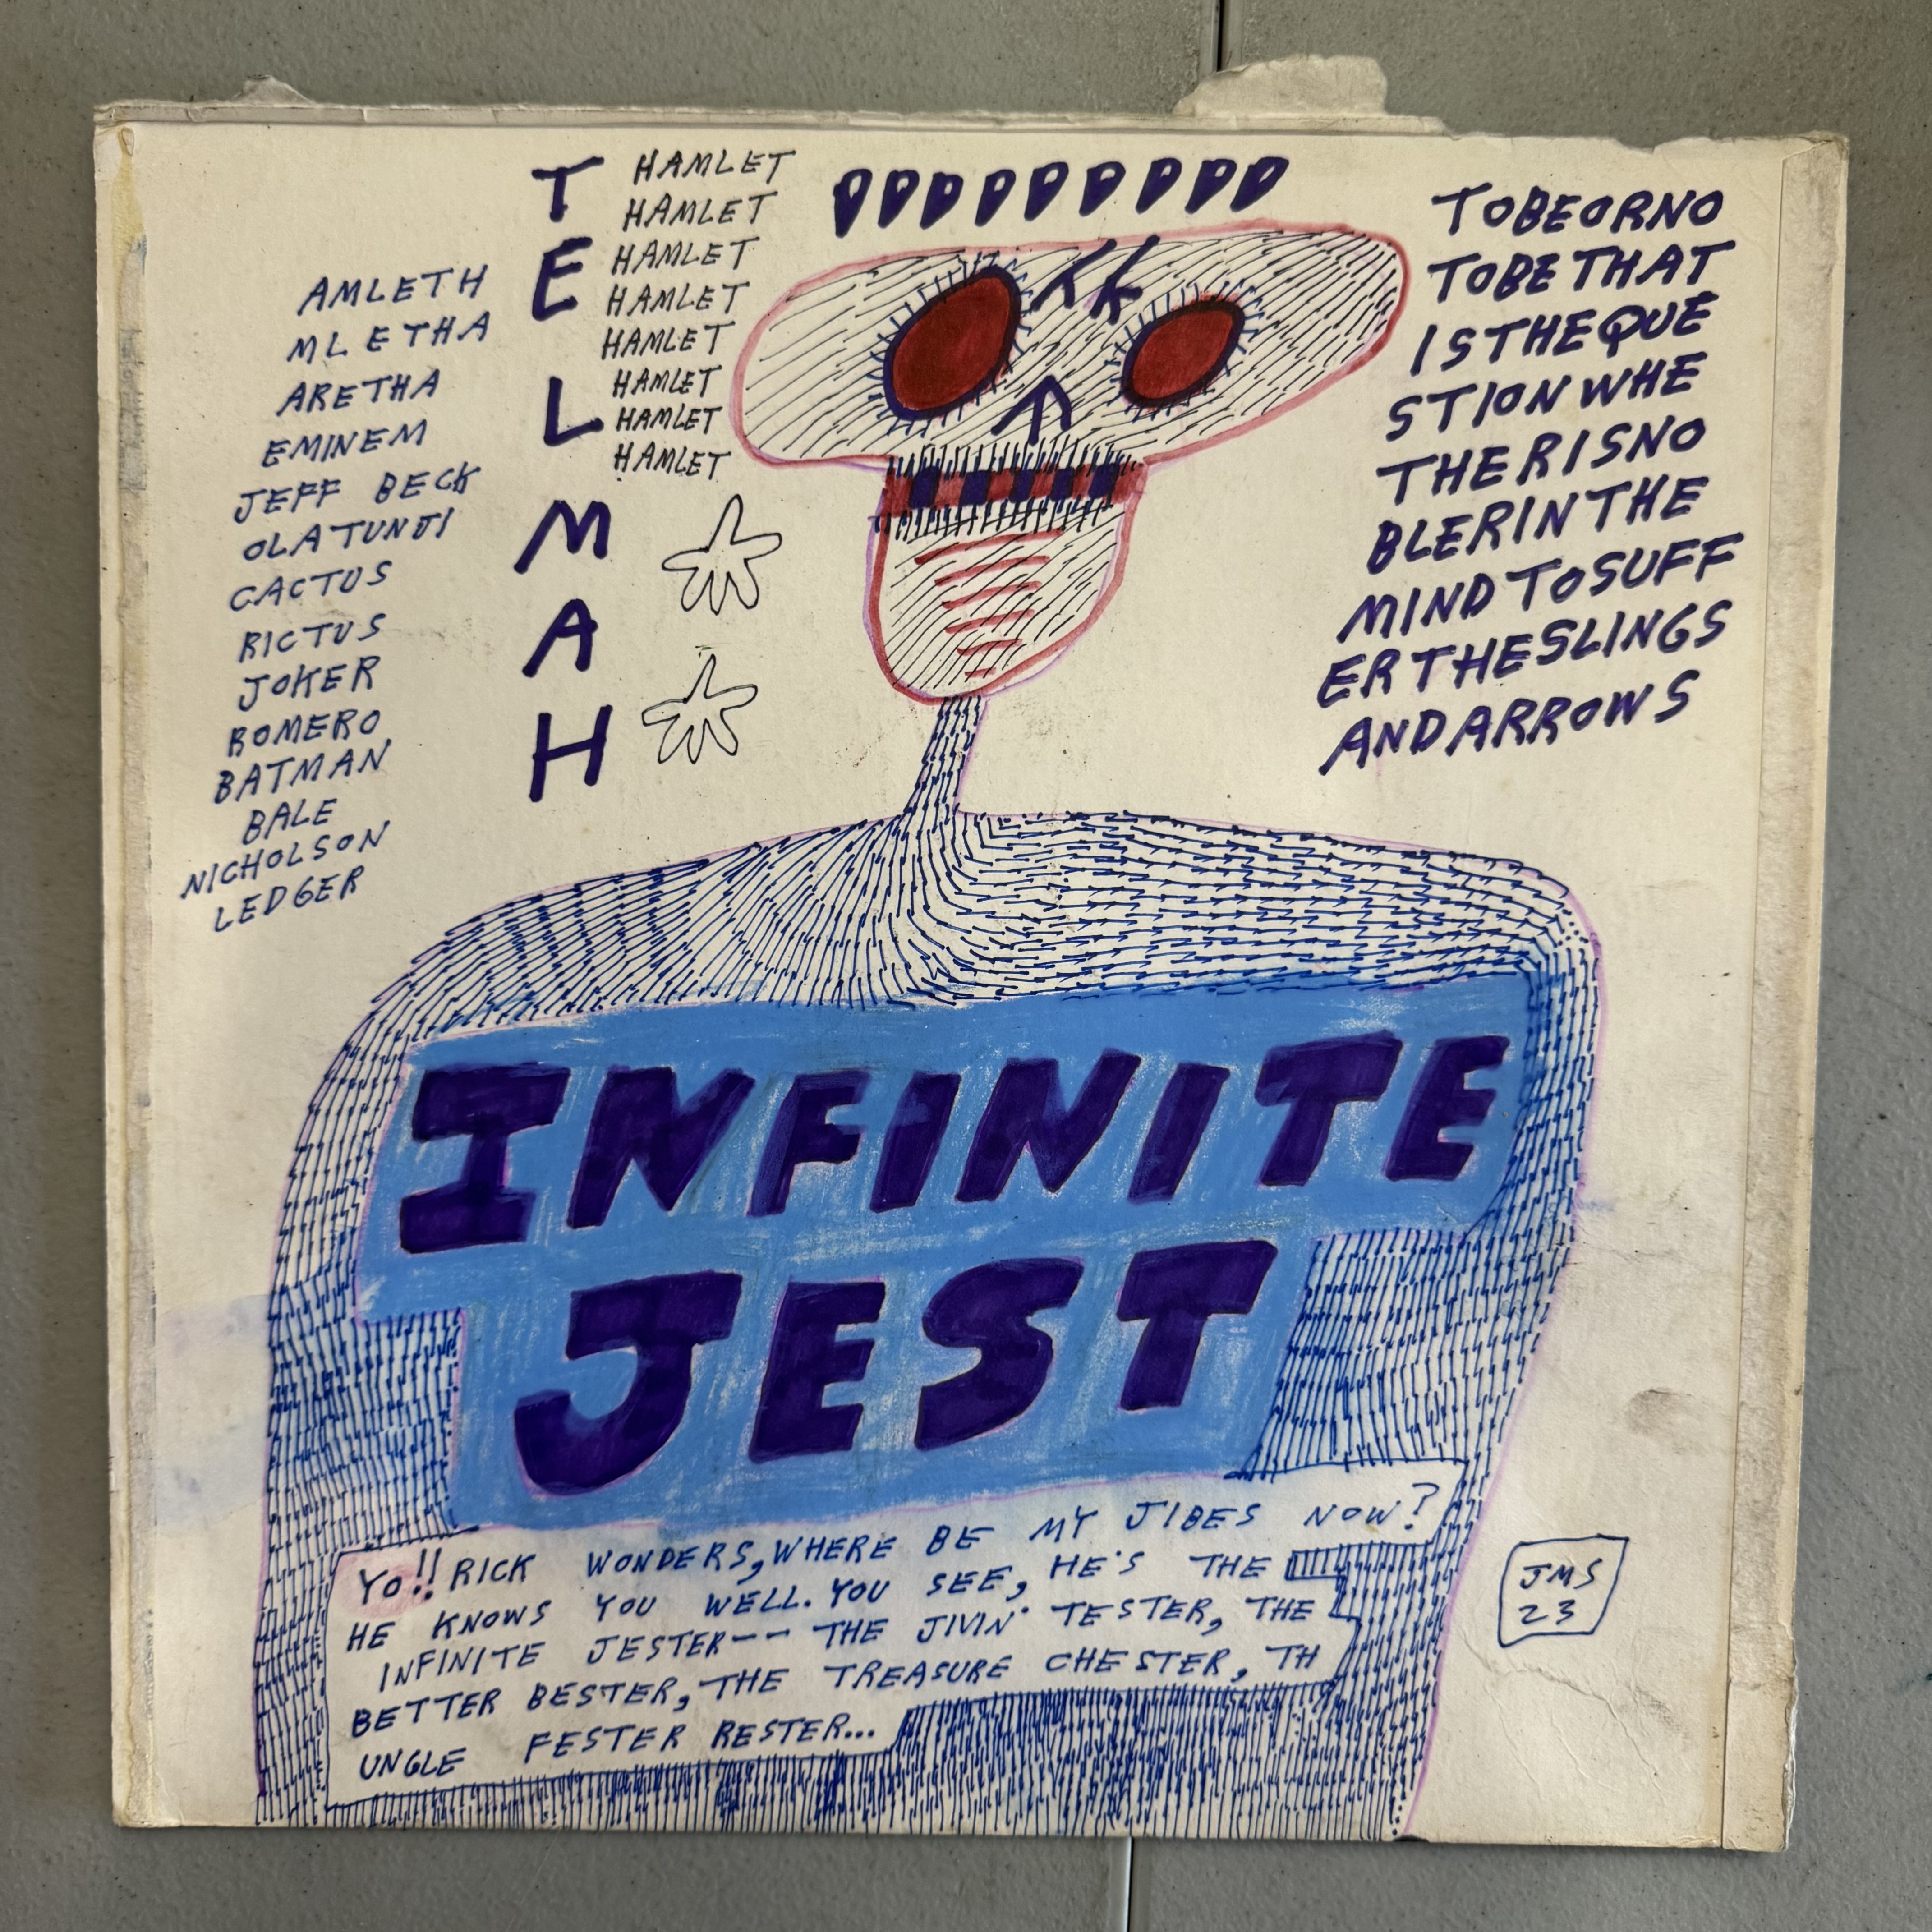 AMLETH
MLETHA
ARETHA
EMINEM
JEFF BECK
OLATUNJI
CACTUS
RICTUS
JOKER
ROMERO
BATMAN
BALE
NICHOLSON
LEDGER
T
E
L
M
A
H
HAMLET
HAMLET
HAMLET
HAMLET
HAMLET
HAMLET
HAMLET
HAMLET
TOBEORNO
TOBE THAT
ISTHEQUE
STIONWHE
THERISNO
BLERINTHE
MIND TOSUFF
ERTHESLINGS
ANDARROWS
INFINITE
JEST
YO!! RICK WONDERS, WHERE BE MY JIBES NOW?
HE KNOWS YOU WELL. YOU SEE, HE'S THE
INFINITE JESTER-- THE JIVIN' TESTER, THE
BETTER BESTER, THE TREASURE CHESTER, TH
UNGLE FESTER RESTER...
JMS
23